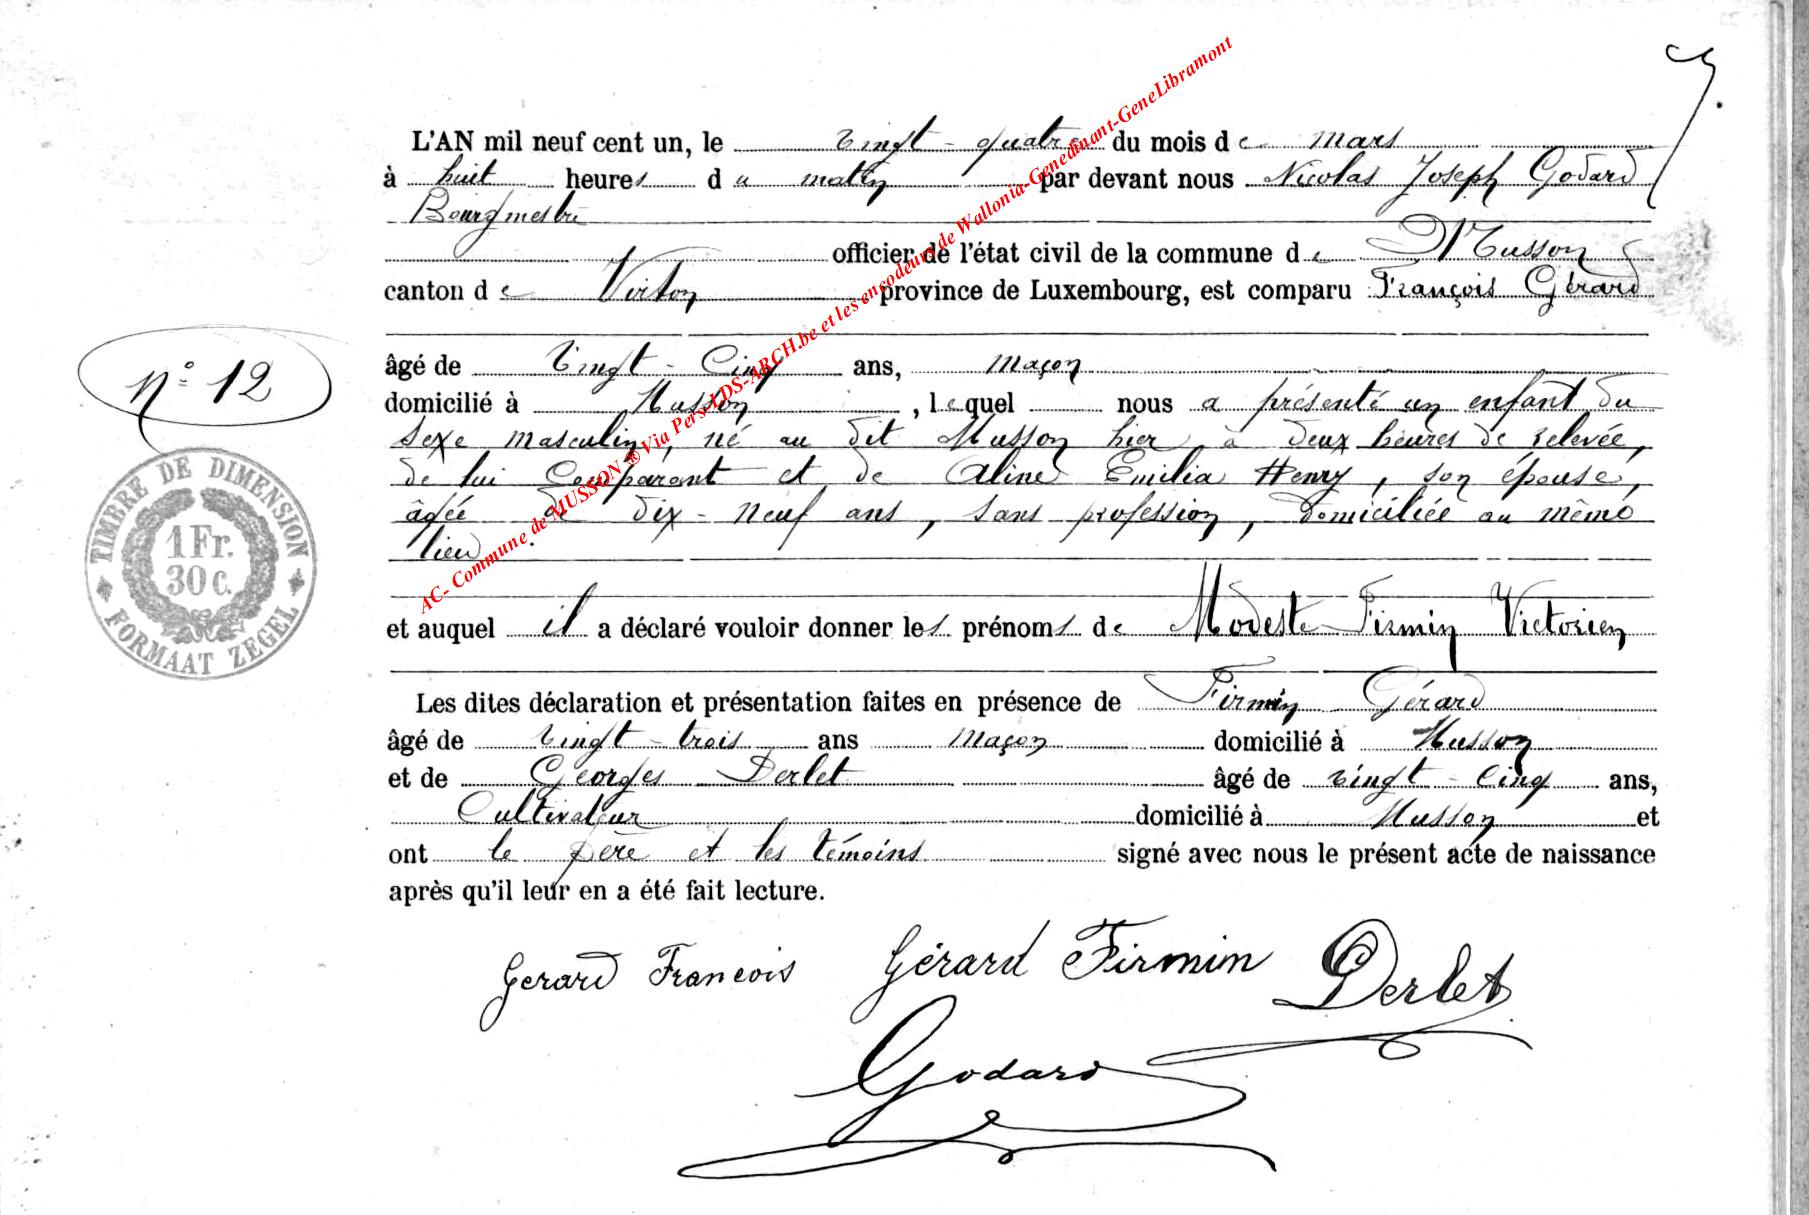 7.
L'AN mil neuf cent un, le vingt-quatre du mois de mars
à huit heures du matin par devant nous Nicolas Joseph Godard
Bourgmestre
officier de l'état civil de la commune de Musson
canton de Virton province de Luxembourg, est comparu François Gérard
âgé de vingt-cinq ans, maçon
N° 12
domicilié à Musson, lequel nous a présenté un enfant du
sexe masculin, né au dit Musson hier à deux heures de relevée,
de lui comparant et de Aline Emilia Henry, son épouse,
âgée de dix-neuf ans, sans profession, domiciliée au même
lieu.
TIMBRE DE DIMENSION
1 Fr.
30 c.
FORMAAT ZEGEL
et auquel il a déclaré vouloir donner les prénoms de Modeste Firmin Victorien
Les dites déclaration et présentation faites en présence de Firmin Gérard
âgé de vingt-trois ans maçon domicilié à Musson
et de Georges Derlet âgé de vingt-cinq ans,
Cultivateur domicilié à Musson et
ont le père et les témoins signé avec nous le présent acte de naissance
après qu'il leur en a été fait lecture.
Gerard Francois Gérard Firmin GDerlet
Godard
AC- Commune de MUSSON ® Via Pers-LDS-ARCH.be et les encodeurs de Wallonia-Genedinant-GeneLibramont